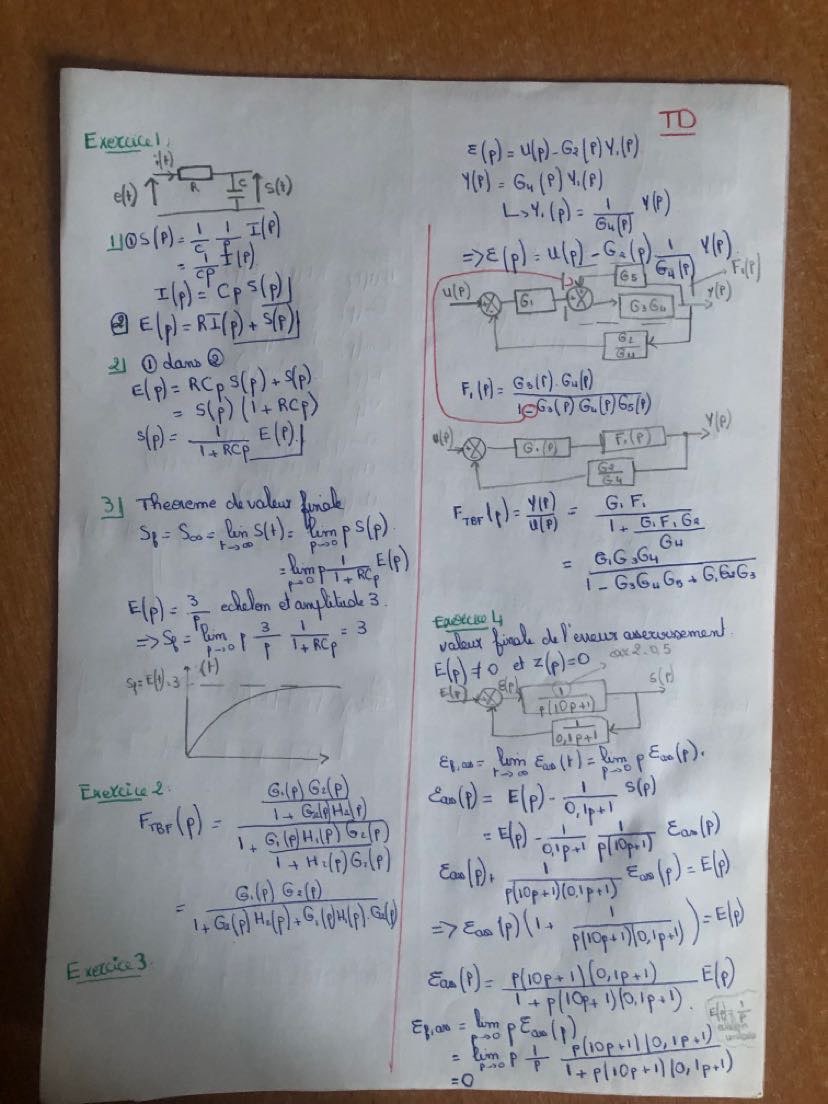 TD
Exercice 1:
i(t)
e(t) R C s(t)
1) ① S(p) = 1/C 1/p I(p)
= 1/Cp I(p)
I(p) = Cp S(p)
② E(p) = RI(p) + S(p)
2) ① dans ②
E(p) = RCp S(p) + S(p)
= S(p) (1 + RCp)
S(p) = 1/(1 + RCp) E(p)
3) Theoreme de valeur finale
Sf = S∞ = lim t→∞ S(t) = lim p→0 p S(p)
= lim p→0 p 1/(1 + RCp) E(p)
E(p) = 3/p echelon et amplitude 3.
=> Sf = lim p→0 p 3/p 1/(1 + RCp) = 3
(t)
Sf = E(t) = 3
Exercice 2:
F_TBF(p) = (G1(p) G2(p) / (1 + G2(p) H2(p))) / (1 + G1(p) H1(p) G2(p) / (1 + H2(p) G2(p)))
= G1(p) G2(p) / (1 + G2(p) H2(p) + G1(p) H1(p) . G2(p))
Exercice 3
ε(p) = U(p) - G2(p) Y1(p)
Y(p) = G4(p) Y1(p)
↳ Y1(p) = 1/G4(p) Y(p)
=> ε(p) = U(p) - G2(p) 1/G4(p) Y(p).
G5 F1(p)
U(p) G1 G3G4 Y(p)
G2/G4
F1(p) = G3(p) . G4(p) / (1 - G3(p) G4(p) G5(p))
U(p) G1(p) F1(p) Y(p)
G2/G4
F_TBF(p) = Y(p)/U(p) = G1 F1 / (1 + G1 F1 G2/G4)
= G1 G3 G4 / (1 - G3 G4 G5 + G1 G2 G3)
Exercice 4
valeur finale de l'erreur asservissement.
E(p) ≠ 0 et Z(p) = 0 car 2.0,5
E(p) ε(p) 1/(p(10p+1)) S(p)
1/(0,1p+1)
εf,as = lim t→∞ εas(t) = lim p→0 p εas(p).
εas(p) = E(p) - 1/(0,1p+1) S(p)
= E(p) - 1/(0,1p+1) 1/(p(10p+1)) εas(p)
εas(p) + 1/(p(10p+1)(0,1p+1)) εas(p) = E(p)
=> εas(p) (1 + 1/(p(10p+1)(0,1p+1))) = E(p)
εas(p) = p(10p+1)(0,1p+1) / (1 + p(10p+1)(0,1p+1)) E(p)
εf,as = lim p→0 p εas(p)
E(p) = 1/p
= lim p→0 p 1/p p(10p+1)(0,1p+1) / (1 + p(10p+1)(0,1p+1))
= 0